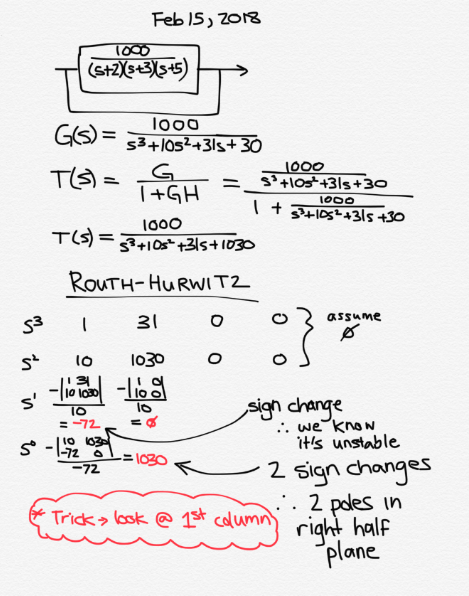 Feb 15, 2018
1000
(s+2)(s+3)(s+5)
G(s) = 1000
s³+10s²+31s+30
T(s) = G / 1+GH = 1000 / s³+10s²+31s+30
1 + 1000 / s³+10s²+31s+30
T(s) = 1000
s³+10s²+31s+1030
ROUTH-HURWITZ
s³ 1 31 0 0 assume
s² 10 1030 0 0 ∅
s¹ -|1 31 -|1 0
10 1030| 10 0|
10 10
= -72 = ∅
sign change
∴ we know
it's unstable
s⁰ -|10 1030
-72 0|
-72
= 1030
2 sign changes
∴ 2 poles in
right half
plane
* Trick → look @ 1st column